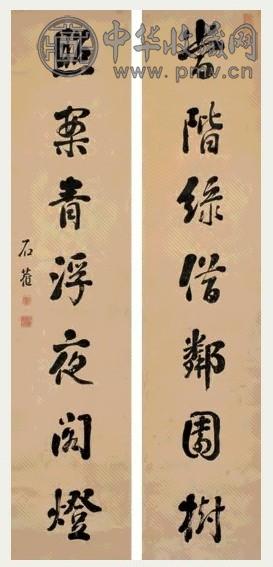 中华收藏网
www.pmv.cn
階綠借鄰園樹
案青浮夜閣燈
石菴